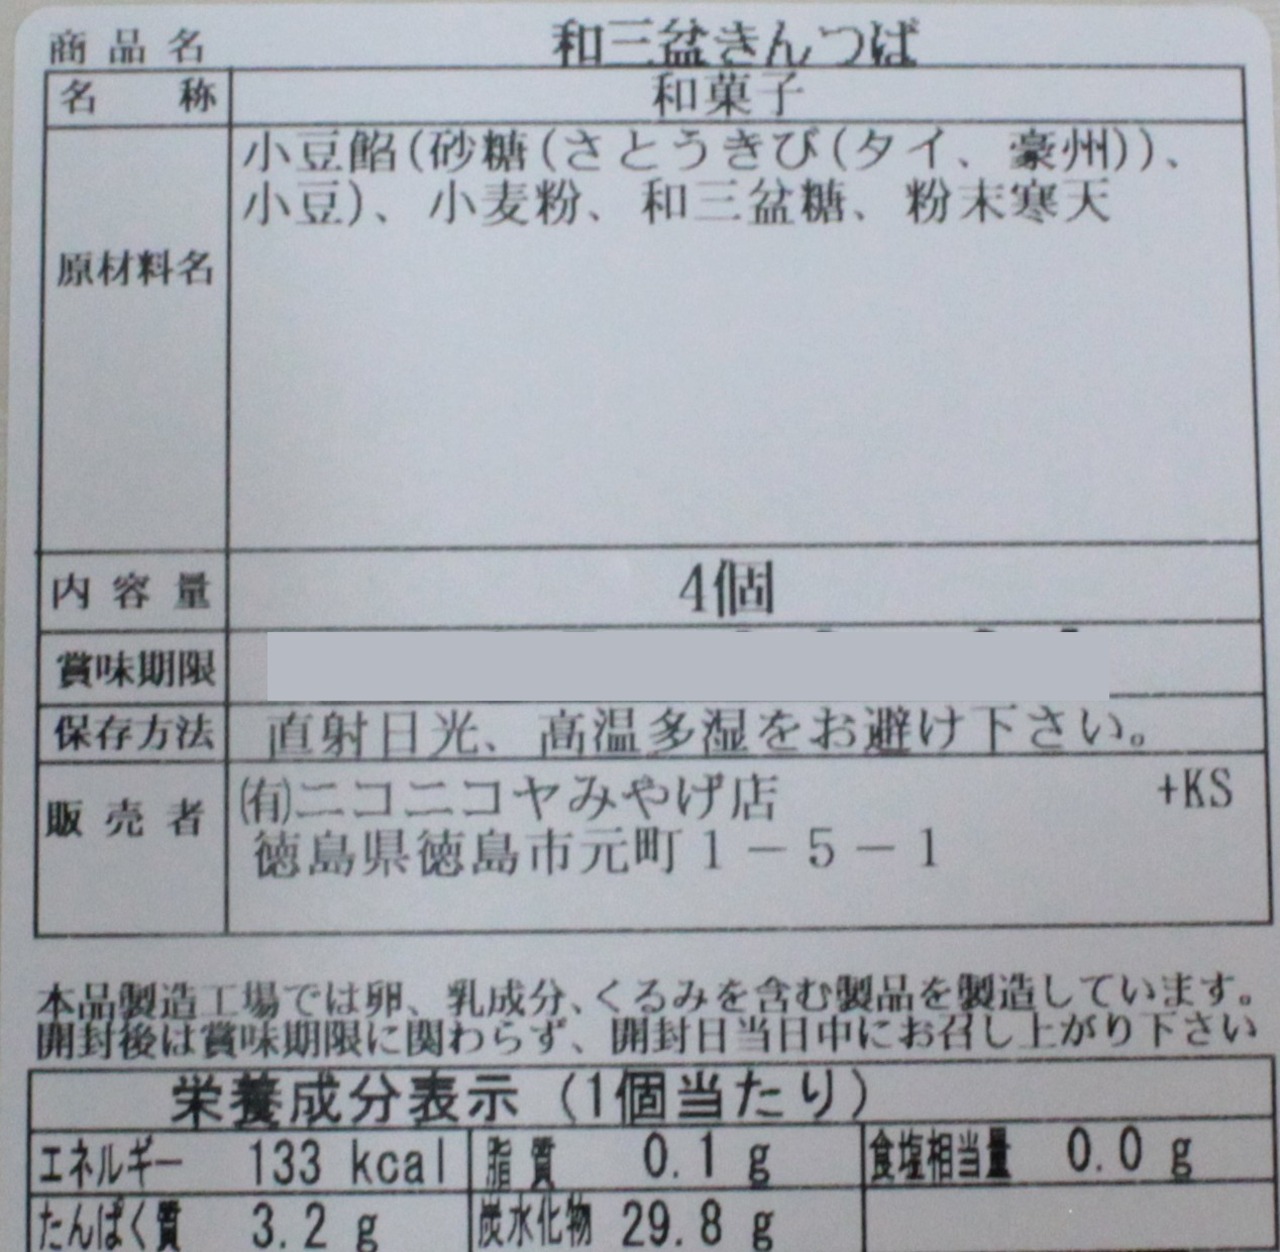 商品名 和三盆きんつば
名称 和菓子
原材料名 小豆餡(砂糖(さとうきび(タイ、豪州))、
小豆)、小麦粉、和三盆糖、粉末寒天
内容量 4個
賞味期限
保存方法 直射日光、高温多湿をお避け下さい。
販売者 ㈲ニコニコヤみやげ店 +KS
徳島県徳島市元町1-5-1
本品製造工場では卵、乳成分、くるみを含む製品を製造しています。
開封後は賞味期限に関わらず、開封日当日中にお召し上がり下さい
栄養成分表示(1個当たり)
エネルギー 133 kcal 脂質 0.1 g 食塩相当量 0.0 g
たんぱく質 3.2 g 炭水化物 29.8 g